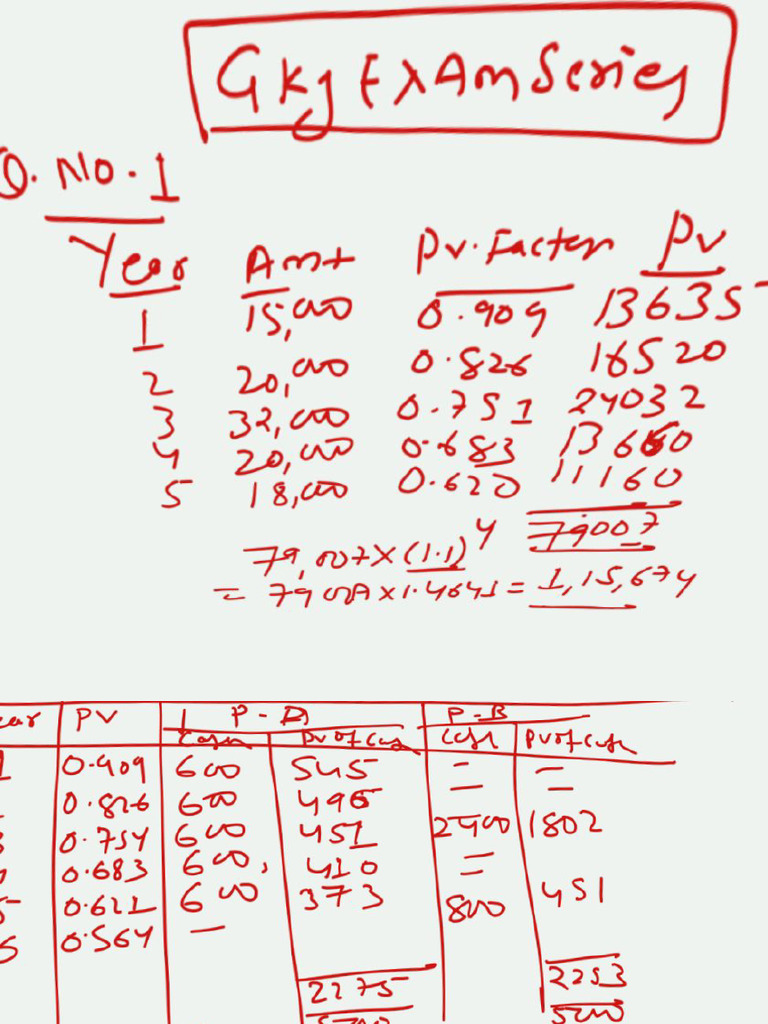 Gkg EXAm Series
Q. No. 1
Year Amt Pv. Factor Pv
1 15,000 0.909 13635
2 20,000 0.826 16520
3 32,000 0.751 24032
4 20,000 0.683 13660
5 18,000 0.620 11160
79007
79,007 × (1.1)^4
= 79007 × 1.4641 = 1,15,674
ear PV P-D P-B
Cash PV of Cas Cash PV of Cash
1 0.909 600 545 = =
0.826 600 496
3 0.754 600 451 2400 1802
0.683 600, 410 =
5 0.621 600 373 800 451
6 0.564 —
2275 2253